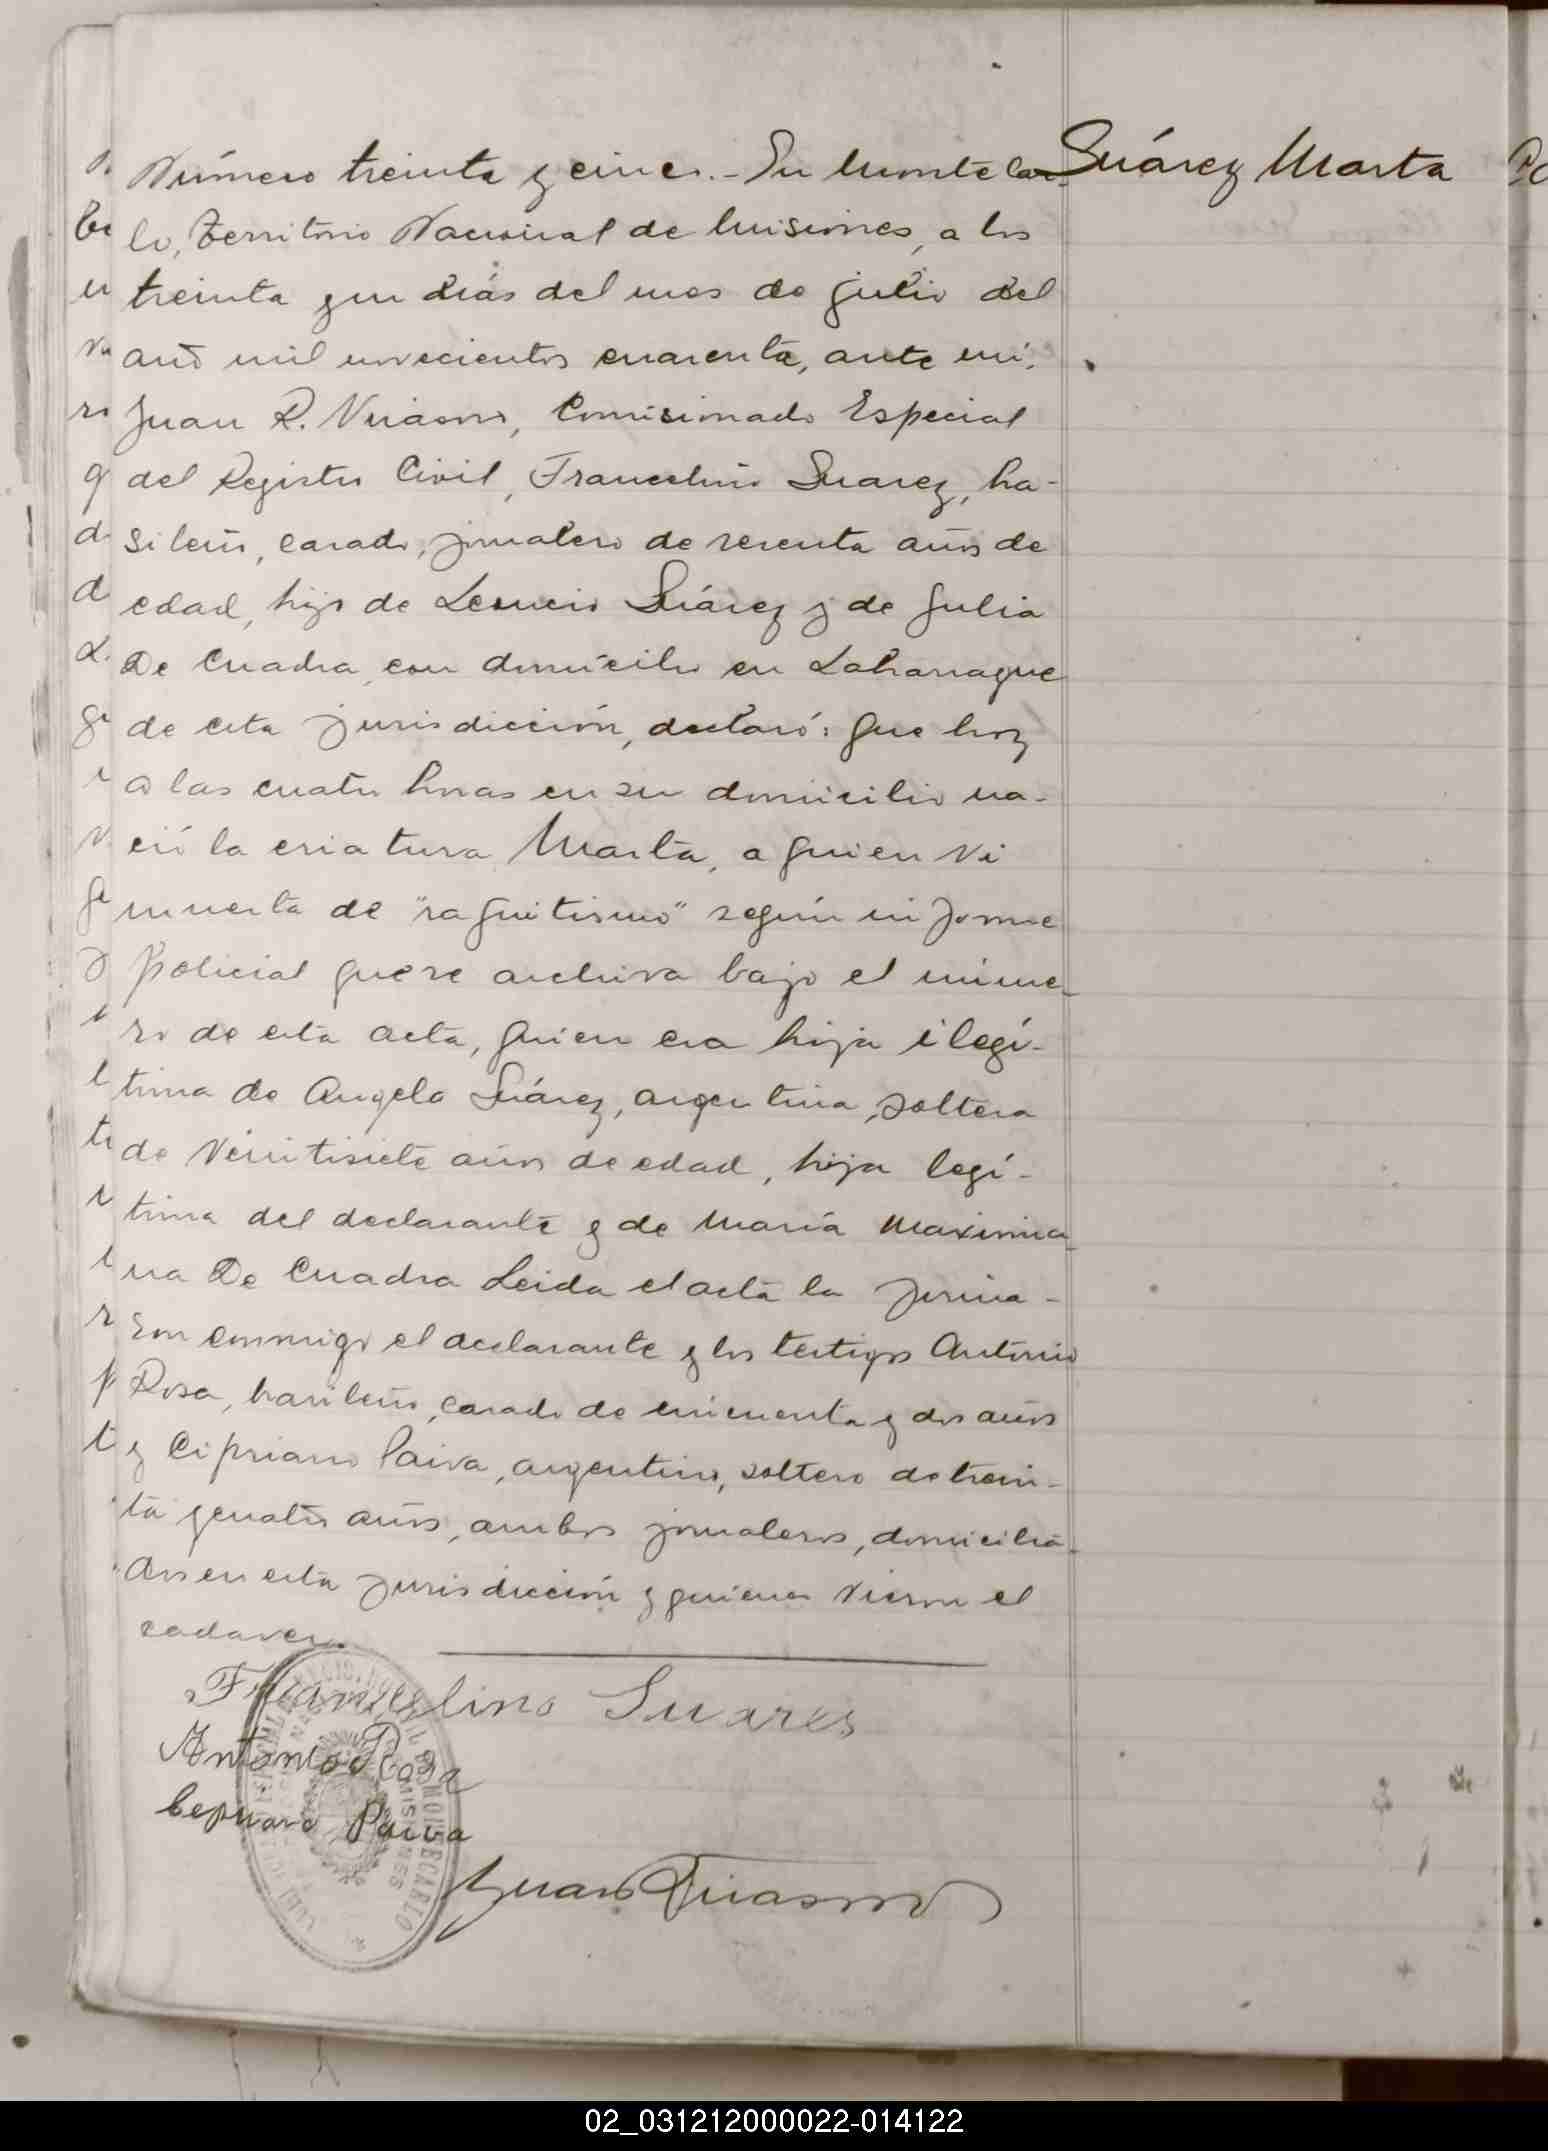 Suárez Marta
Número treinta y cinco.- En Monte Car-
lo, Territorio Nacional de Misiones, a los
treinta y un dias del mes de julio del
año mil novecientos cuarenta, ante mi,
Juan R. Virasoro, Comisionado Especial
del Registro Civil, Francelino Suarez, bra-
sileño, casado, jornalero de sesenta años de
edad, hijo de Leoncio Suárez y de Julia
De Cuadra, con domicilio en Laharrague
de esta jurisdicción, declaró: que hoy
a las cuatro horas en su domicilio na-
ció la criatura Marta, a quien vi
muerta de "raquitismo" según informe
policial que se archiva bajo el núme-
ro de esta acta, quien era hija ilegí-
tima de Angela Suárez, argentina, soltera
de veintisiete años de edad, hija legí-
tima del declarante y de María Maximia-
na De Cuadra Leida el acta la firma-
ron conmigo el declarante y los testigos Antonio
Rosa, brasileño, casado de cincuenta y dos años
y Cipriano Paiva, argentino, soltero de trein-
ta y cuatro años, ambos jornaleros, domicilia-
dos en esta jurisdicción y quienes vieron el
cadaver.
Francelino Suares
Antonio Rosa
Cepriano Paiva
Juan R Virasoro
MONTECARLO
MISIONES
02_031212000022-014122